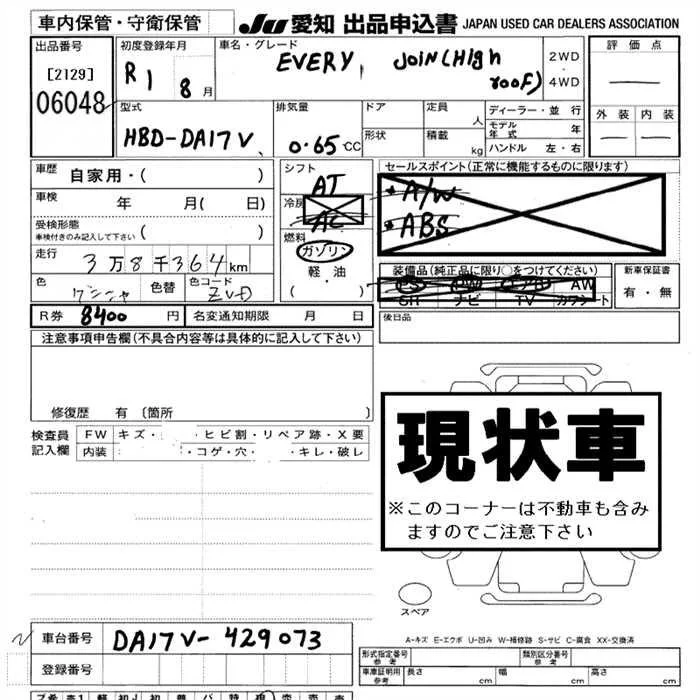 車内保管・守衛保管 JU 愛知 出品申込書 JAPAN USED CAR DEALERS ASSOCIATION
出品番号 初度登録年月 車名・グレード 2WD 評価点
[2129] R1 8月 EVERY, JOIN(High roof) 4WD
06048 外装 内装
型式 排気量 ドア 定員 人 ディーラー・並行
HBD-DA17V 0.65CC 形状 積載 kg モデル年式 年
ハンドル 左・右
車歴 自家用・( ) シフト AT セールスポイント(正常に機能するものに限ります)
車検 年 月( 日) 冷房 AC *A/W
受検形態 *ABS
車検付きのみ記入して下さい 燃料
走行 3万8千364km ガソリン 装備品(純正品に限り○をつけてください) 新車保証書
色 色替 色コード ZVD 軽・油 PS AW エアB AW 有・無
( ) SR ナビ TV カワシート
R券 8400円 名変通知期限 月 日 後日品
注意事項申告欄(不具合内容等は具体的に記入して下さい)
修復歴 有〔箇所 〕
現状車
※このコーナーは不動車も含み
ますのでご注意下さい
検査員 FW キズ・ ・ヒビ割・リペア跡・X要
記入欄 内装 ・コゲ・穴・ ・キレ・破レ
スペア
A-キズ E-エクボ U-凹み W-補修跡 S-サビ C-腐食 XX-交換済
車台番号 DA17V-429073
登録番号
形式指定番号 参考 類別区分番号 参考
車庫証明用 参考 長さ cm 幅 cm 高さ cm